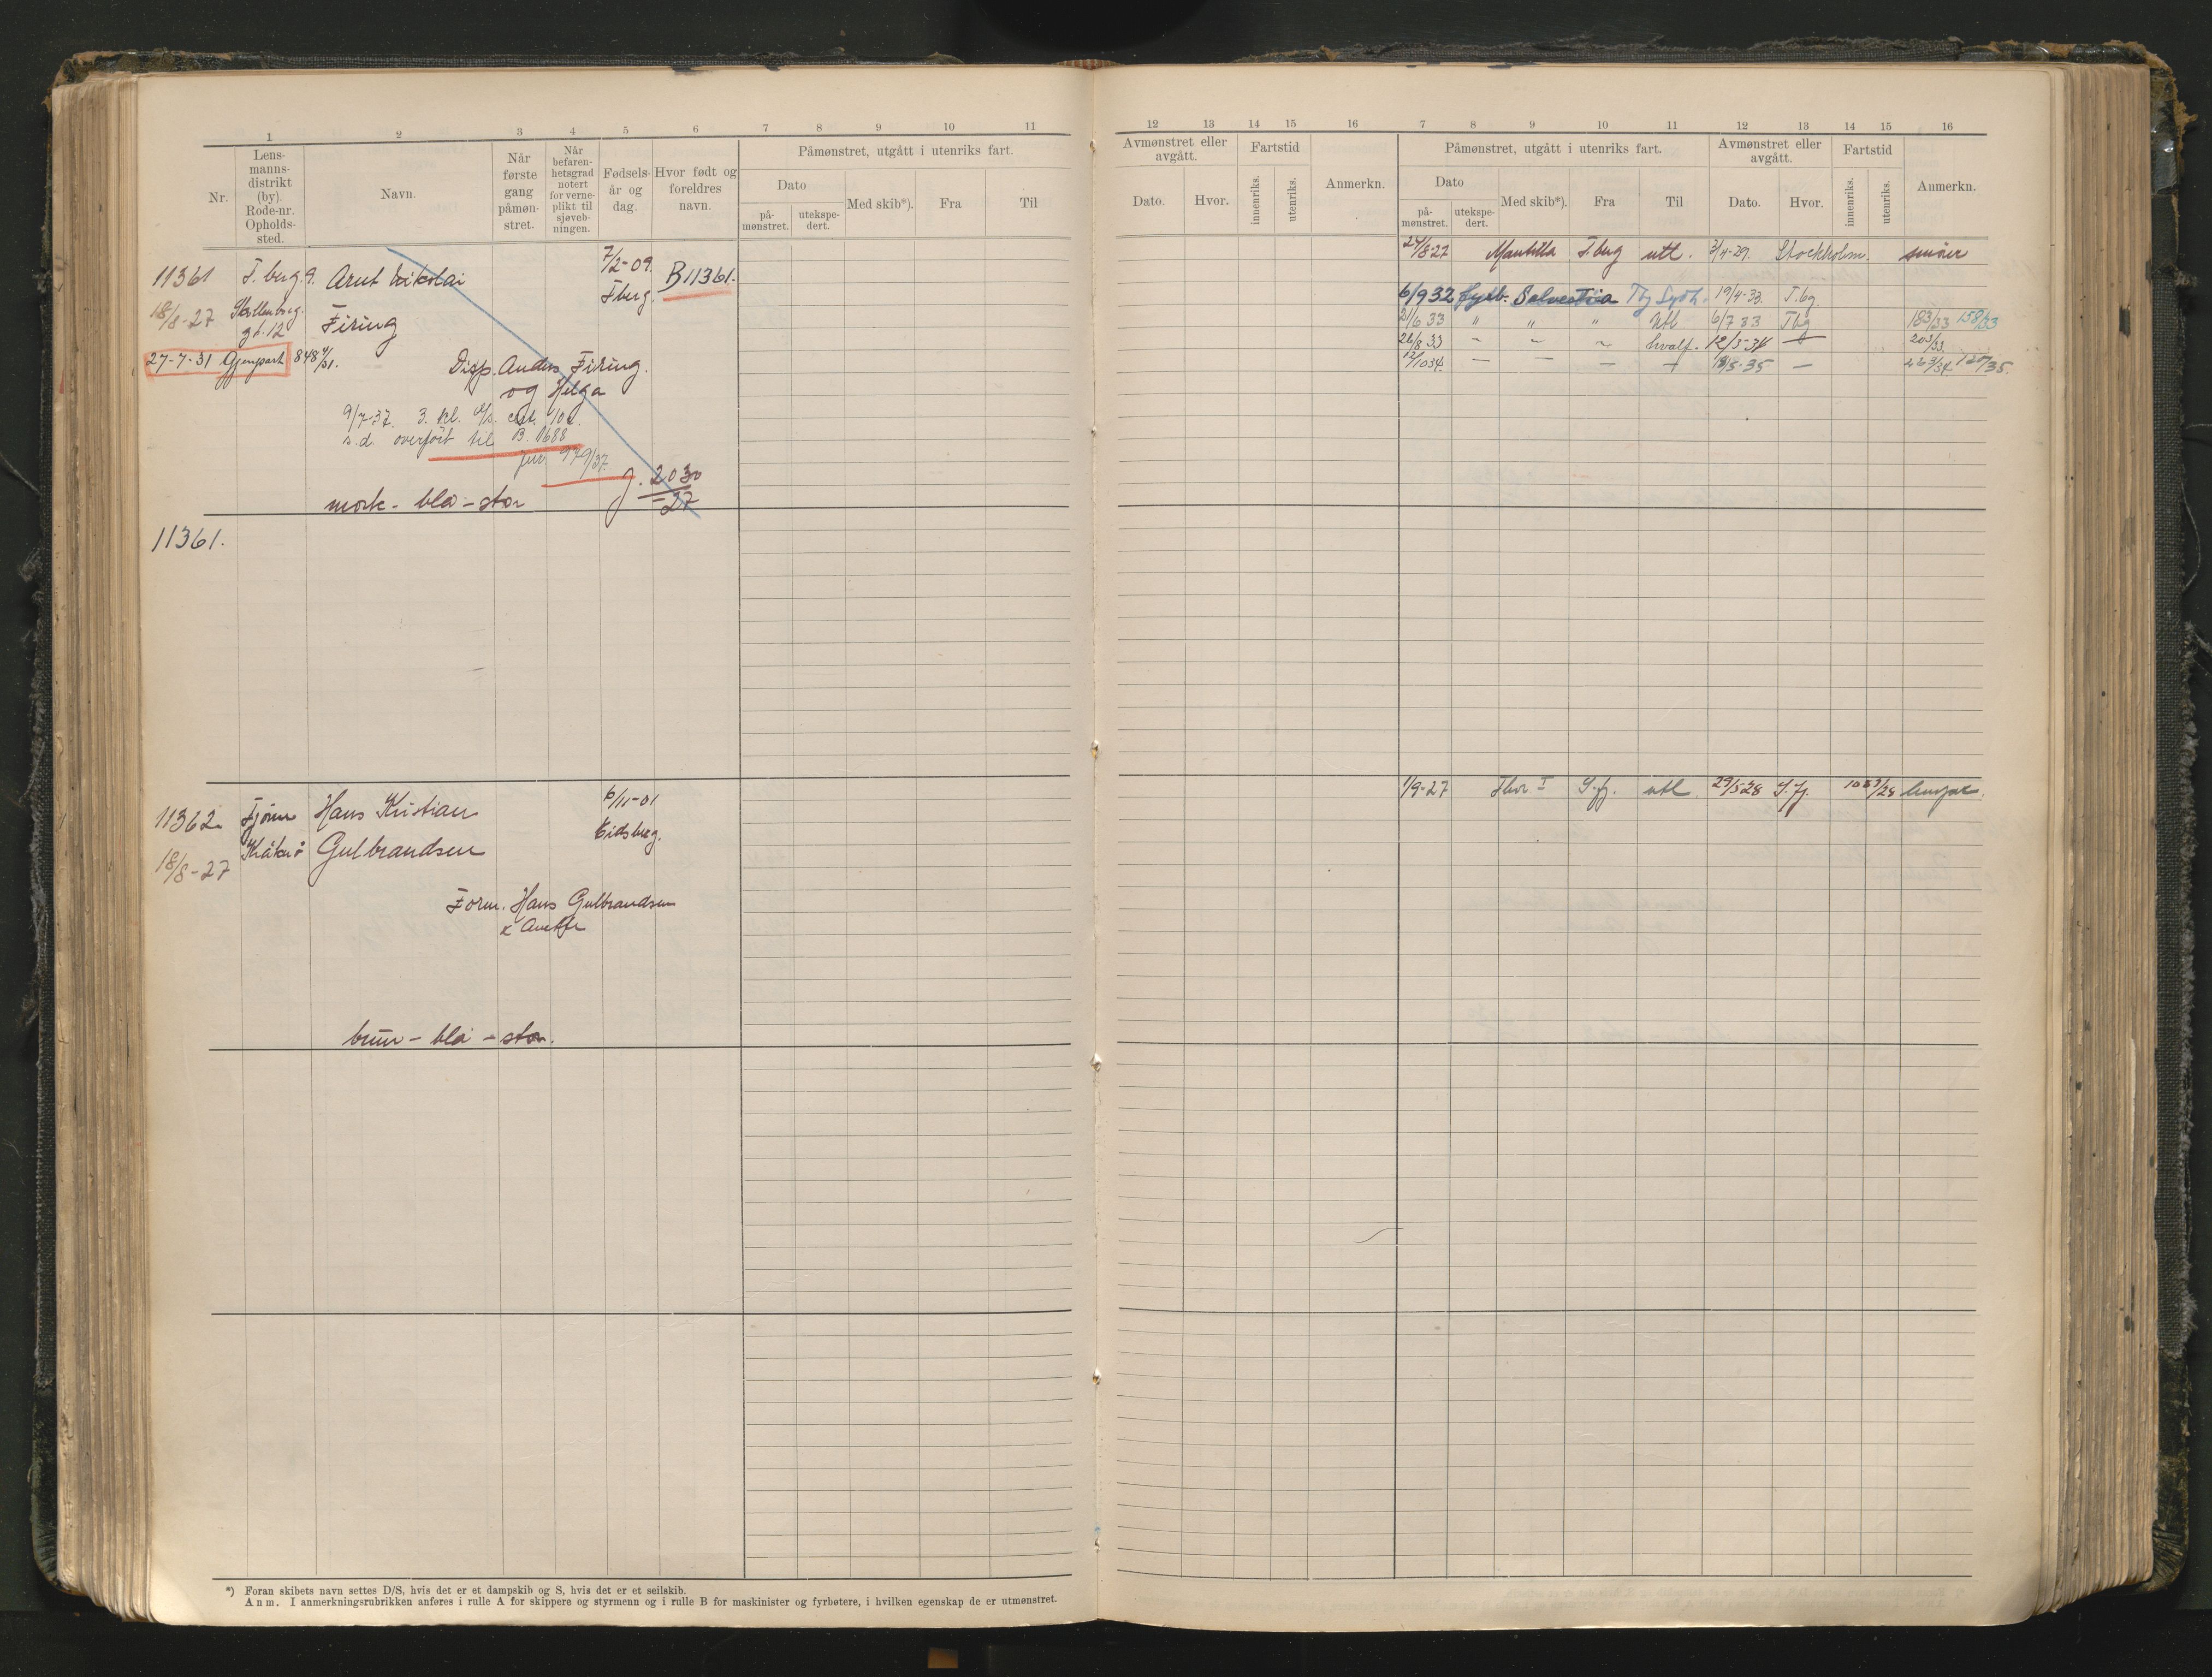 1 2 3 4 5 6 7 8 9 10 11
Nr.
Lens-
manns-
distrikt
(by).
Rode-nr.
Opholds-
sted.
Navn.
Når
første
gang
påmøn-
stret.
Når
befaren-
hetsgrad
notert
for verne-
plikt til
sjøveb-
ningen.
Fødsels-
år og
dag.
Hvor født og
foreldres
navn.
Påmønstret, utgått i utenriks fart.
Dato
på-
mønstret.
utekspe-
dert.
Med skib*).
Fra
Til
11361 T.berg 9. Arnt Nikolai 7/2-09. B11361.
Tberg.
18/8-27 Skallenborg
gt. 12 Firing
27-7-31 Gjenpart 848 4/31.
Disp. Anders Firing.
og Helga
9/7-37. 3. kl.
s.d. overført til B. 1688
jur 979/37.
J. 2030
-27
mørk - blå - stor
11361.
11362 Tjøme Hans Kristian 6/11-01
Eidsberg.
18/8-27 Gulbrandsen
Form. Hans Gulbrandsen
brun - blå - stor.
*) Foran skibets navn settes D/S, hvis det er et dampskib og S, hvis det er et seilskib.
Anm. I anmerkningsrubrikken anføres i rulle A for skippere og styrmenn og i rulle B for maskinister og fyrbøtere, i hvilken egenskap de er utmønstret.
12 13 14 15 16 7 8 9 10 11 12 13 14 15 16
Avmønstret eller
avgått.
Dato.
Hvor.
Fartstid
innenriks.
utenriks.
Anmerkn.
Påmønstret, utgått i utenriks fart.
Dato
på-
mønstret.
utekspe-
dert.
Med skib*).
Fra
Til
Avmønstret eller
avgått.
Dato.
Hvor.
Fartstid
innenriks.
utenriks.
Anmerkn.
24/8-27 Mantilla Tberg utl. 3/4-29. Stockholm. smører
6/9 32 fyrb. Solvestria Tbg Sydh. 19/4-33. T.bg.
21/6 33 " " " Utl 6/7 33 Tbg 183/33 158/33
26/8 33 - " ~ hvalf. 12/5-34 — 203/33
12/10 34. — — — — /5-35 — 223/34 120/35.
1/9-27 Thor I S.fj. utl 29/5-28 S.fj.